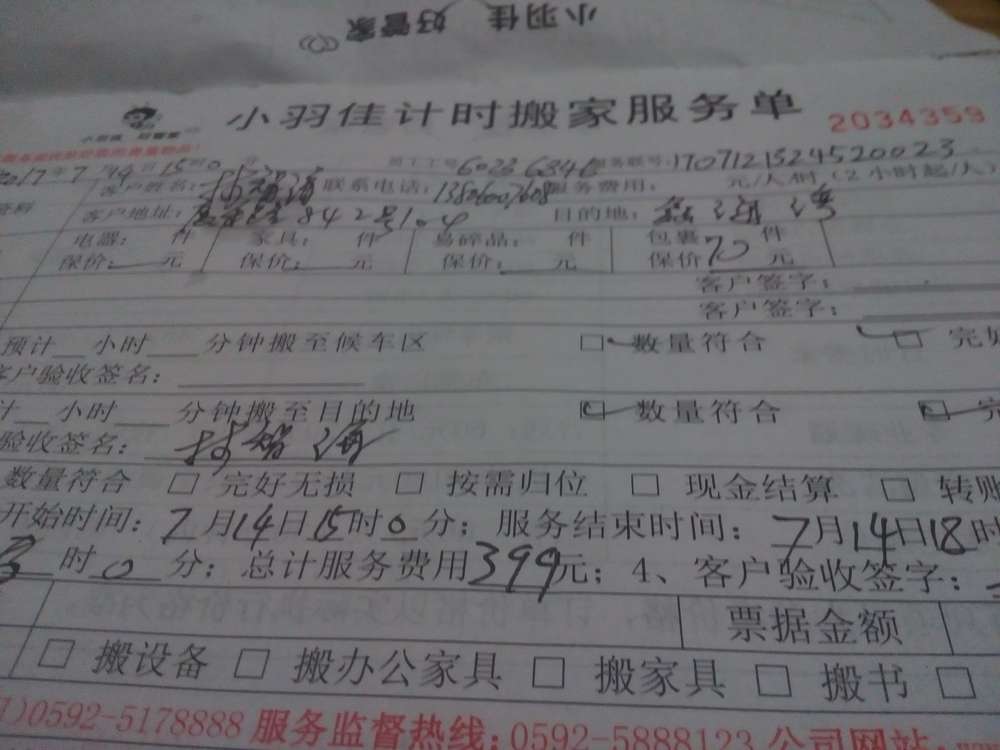 小羽佳 好管家
小羽佳计时搬家服务单 2034359
2017年7月14日15时0分 员工工号 服务联号：1707121524520023
客户姓名： 联系电话： 服务费用： 元/人/时（2小时起/人）
客户地址： 842号104 目的地：
电器： 件 家具： 件 易碎品： 件 包裹 件
保价： 元 保价： 元 保价： 元 保价 70 元
客户签字：
客户签字：
预计 小时 分钟搬至候车区 □ 数量符合 □ 完好
客户验收签名：
计 小时 分钟搬至目的地 □ 数量符合 □ 完
验收签名：
数量符合 □ 完好无损 □ 按需归位 □ 现金结算 □ 转账
开始时间：7月14日15时0分；服务结束时间：7月14日18时
3时0分；总计服务费用399元；4、客户验收签字：
票据金额
□ 搬设备 □ 搬办公家具 □ 搬家具 □ 搬书 □
)0592-5178888 服务监督热线：0592-5888123 公司网站